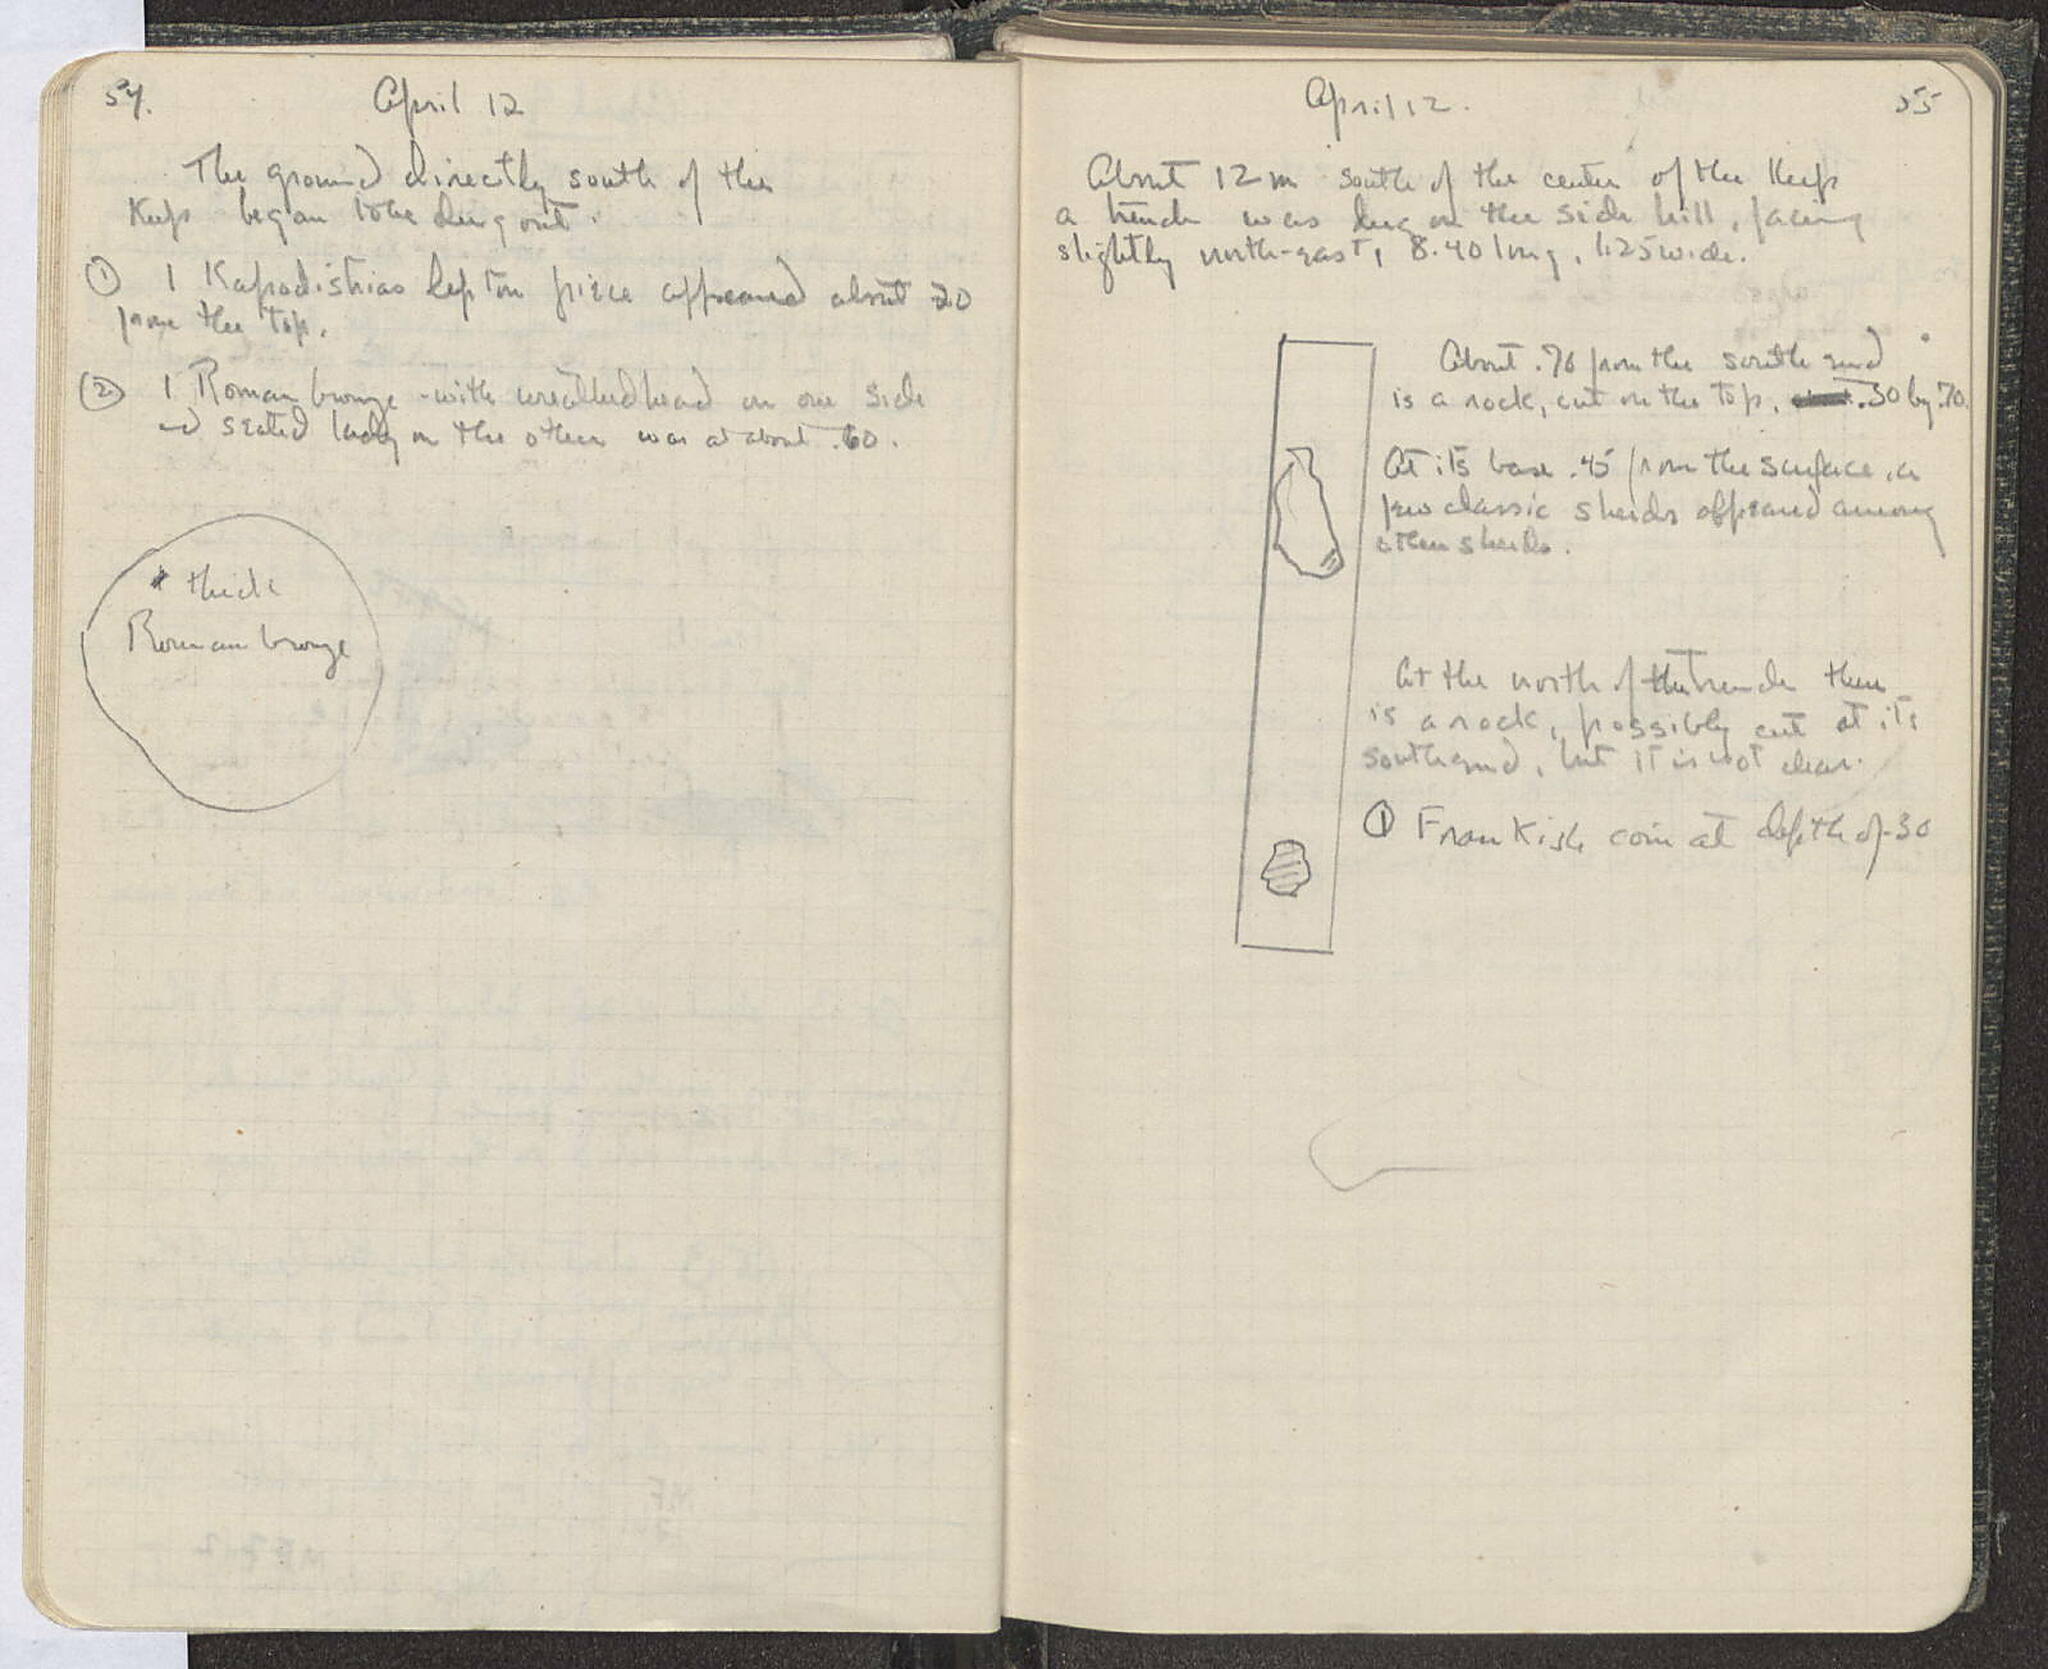 54.
April 12
The ground directly south of the
Keep began to be dug out.
① 1 Kapodistrias lepton piece appeared about 20
from the top.
② 1 Roman bronze - with wreathed head on one side
and seated lady on the other was at about .60.
thick
Roman bronze
April 12.
55
About 12 m south of the center of the Keep
a trench was dug on the side hill, facing
slightly north-east, 8.40 long, 1.25 wide.
About .70 from the south end
is a rock, cut on the top, .50 by .70.
At its base .45 from the surface, a
few classic sherds appeared among
other sherds.
At the north of the trench there
is a rock, possibly cut at its
south end, but it is not clear.
① Frankish coin at depth of .30